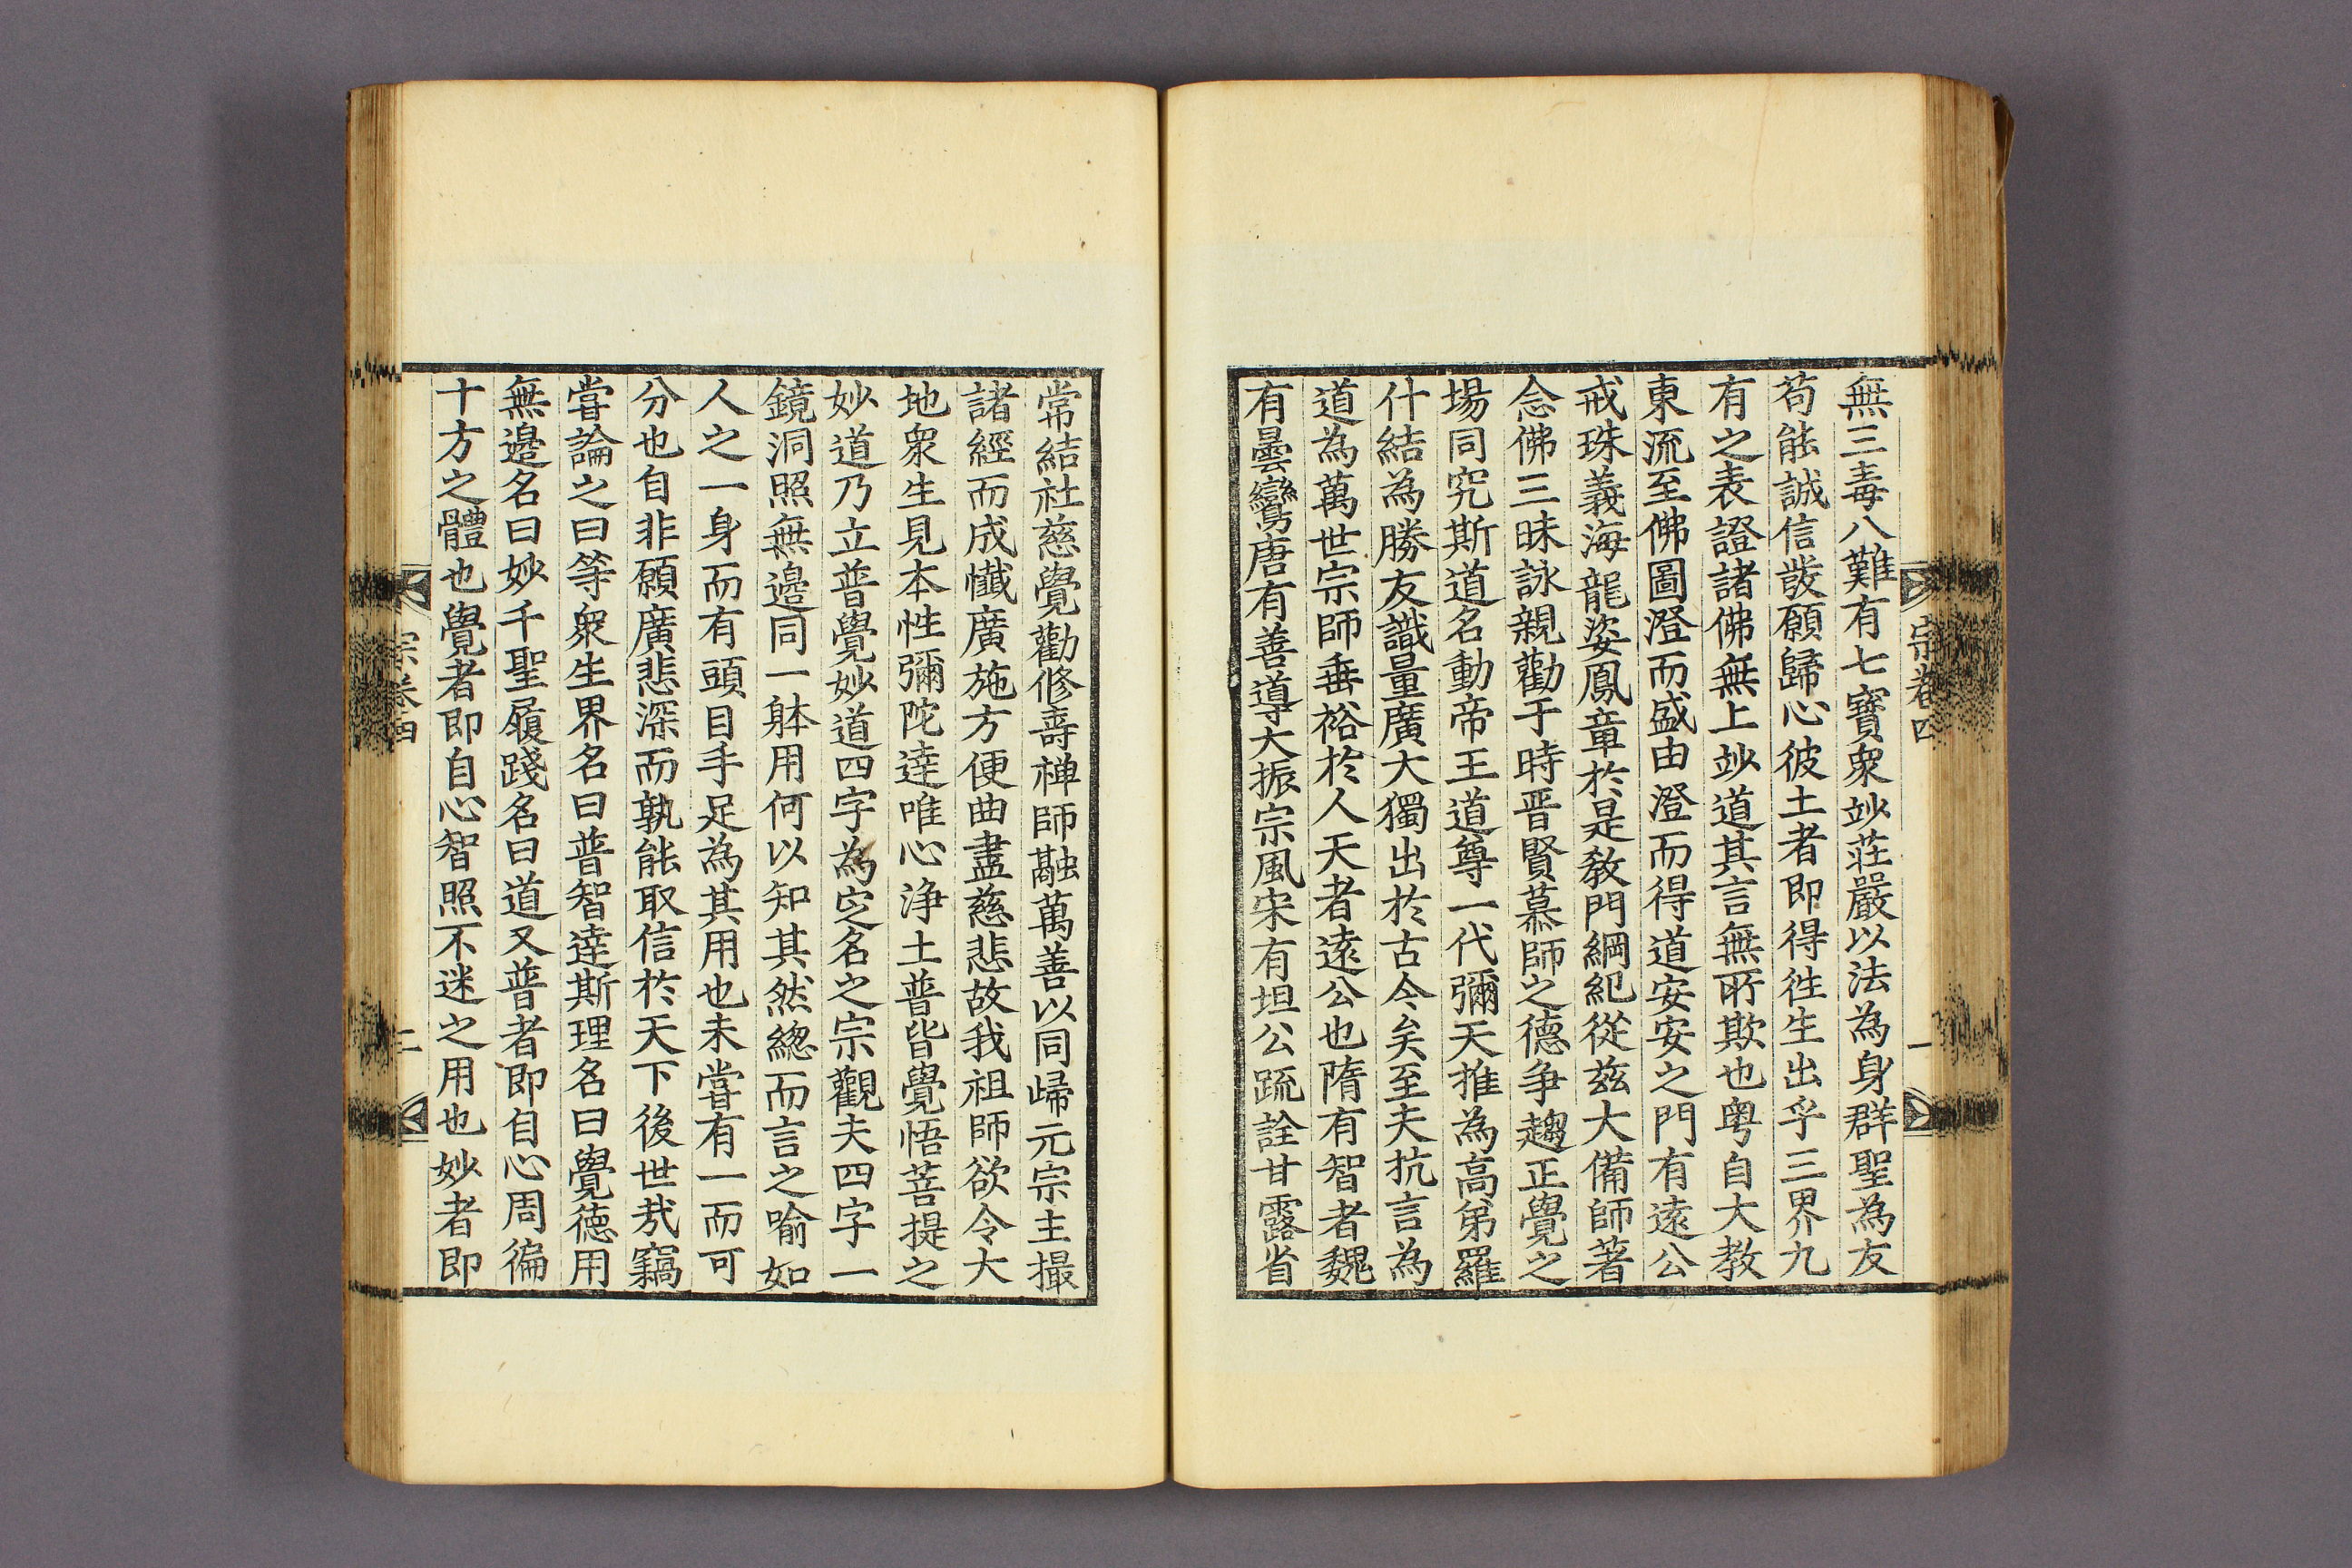 宗卷四
一
無三毒八難有七寶衆妙莊嚴以法為身群聖為友
苟能誠信發願歸心彼土者即得徃生出乎三界九
有之表證諸佛無上妙道其言無所欺也粤自大教
東流至佛圖澄而盛由澄而得道安安之門有遠公
戒珠義海龍姿鳳章於是教門綱紀從茲大備師著
念佛三昧詠親勸于時晋賢慕師之德争趨正覺之
場同究斯道名動帝王道尊一代彌天推為高弟羅
什結為勝友識量廣大獨出於古今矣至夫抗言為
道為萬世宗師垂裕於人天者遠公也隋有智者魏
有曇鸞唐有善導大振宗風宋有坦公䟽詮甘露省
常結社慈覺勸修壽禅師融萬善以同歸元宗主撮
諸經而成懺廣施方便曲盡慈悲故我祖師欲令大
地衆生見本性彌陀達唯心浄土普皆覺悟菩提之
妙道乃立普覺妙道四字為㝎名之宗觀夫四字一
鏡洞照無邉同一躰用何以知其然緫而言之喻如
人之一身而有頭目手足為其用也未嘗有一而可
分也自非願廣悲深而孰能取信於天下後世㦲竊
嘗論之曰等衆生界名曰普智達斯理名曰覺徳用
無邉名曰妙千聖履踐名曰道又普者即自心周徧
十方之體也覺者即自心智照不迷之用也妙者即
宗卷四
二